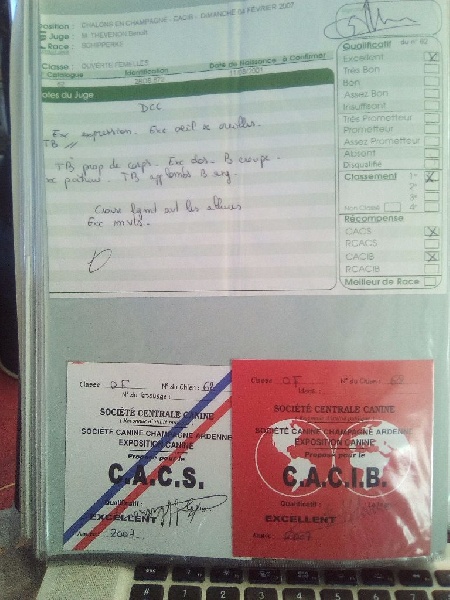 CHALONS EN CHAMPAGNE - CACIB - DIMANCHE 04 FÉVRIER 2007
Juge : M. THEVENON Benoit
Race : SCHIPPERKE
Classe : OUVERTE FEMELLES
Catalogue
Identification
Date de Naissance
à Confirmer
62
Notes du Juge
DCC
Exc expression. Exc œil et oreilles.
TB //
TB prop de corps. Exc dos. B croupe.
TB aplombs B ang.
Exc mvts.
Qualificatif
du n° 62
Excellent
Très Bon
Bon
Assez Bon
Insuffisant
Très Prometteur
Prometteur
Assez Prometteur
Absent
Disqualifié
Classement 1°
2°
3°
Non Classé 4°
Récompense
CACS
RCACS
CACIB
RCACIB
Meilleur de Race
Classe : OF N° du Chien : 62
N° du Tatouage :
SOCIÉTÉ CENTRALE CANINE
SOCIÉTÉ CANINE CHAMPAGNE ARDENNE
EXPOSITION CANINE
Proposé pour le
C.A.C.S.
Qualificatif :
EXCELLENT
Année : 2007
Classe : OF N° du Chien : 62
SOCIÉTÉ CENTRALE CANINE
SOCIÉTÉ CANINE CHAMPAGNE ARDENNE
EXPOSITION CANINE
Proposé pour le
C.A.C.I.B.
Qualificatif :
EXCELLENT
Année : 2007